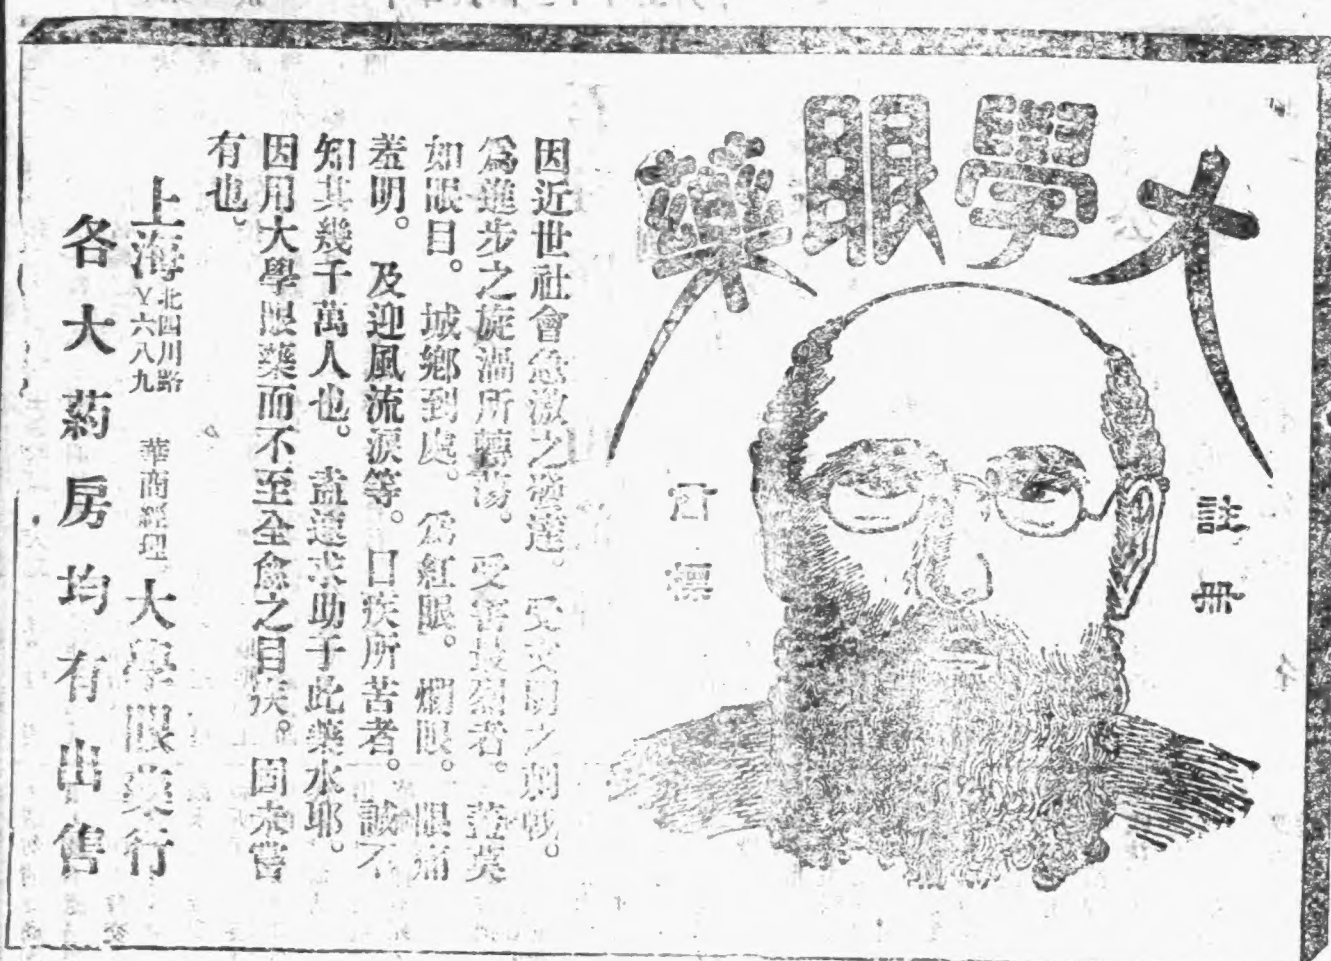 大學眼藥
註冊
商標
因近世社會急激之發達。受文明之刺戟。
爲進步之旋渦所轉蕩。受害最劇者。蓋莫
如眼目。城鄉到處。爲紅眼。爛眼。眼痛
羞明。及迎風流淚等。目疾所苦者。誠不
知其幾千萬人也。盍速求助于此藥水耶。
因用大學眼藥而不至全愈之目疾。固未嘗
有也。
上海北四川路Y六八九 華商經理 大學眼藥行
各大葯房均有出售